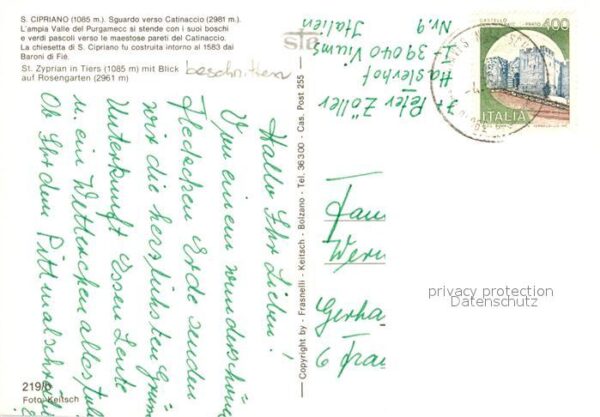 S. CIPRIANO (1085 m.). Sguardo verso Catinaccio (2981 m.).
L'ampia Valle del Purgamecc si stende con i suoi boschi
e verdi pascoli verso le maestose pareti del Catinaccio.
La chiesetta di S. Cipriano fu costruita intorno al 1583 dai
Baroni di Fiè.
St. Zyprian in Tiers (1085 m) mit Blick
auf Rosengarten (2961 m)
beschnitten
Hallo Ihr Lieben!
Von einem wunderschön
Fleckchen Erde senden
wir die herzlichsten Grüß
Unterkunft Essen Leute
u. ein Wetterchen alles
Ob Ihr dem Pitt mal
219/
Foto: Keitsch
Copyright by - Frasnelli - Keitsch - Bolzano - Tel. 36300 - Cas. Post 255 -
Peter Zöller
Haslerhof
I 39040
Nr. 9
Italien
CASTELLO
PRATO
400
ITALIA
Fam
Wern
Gerha
6 Fran
privacy protection
Datenschutz